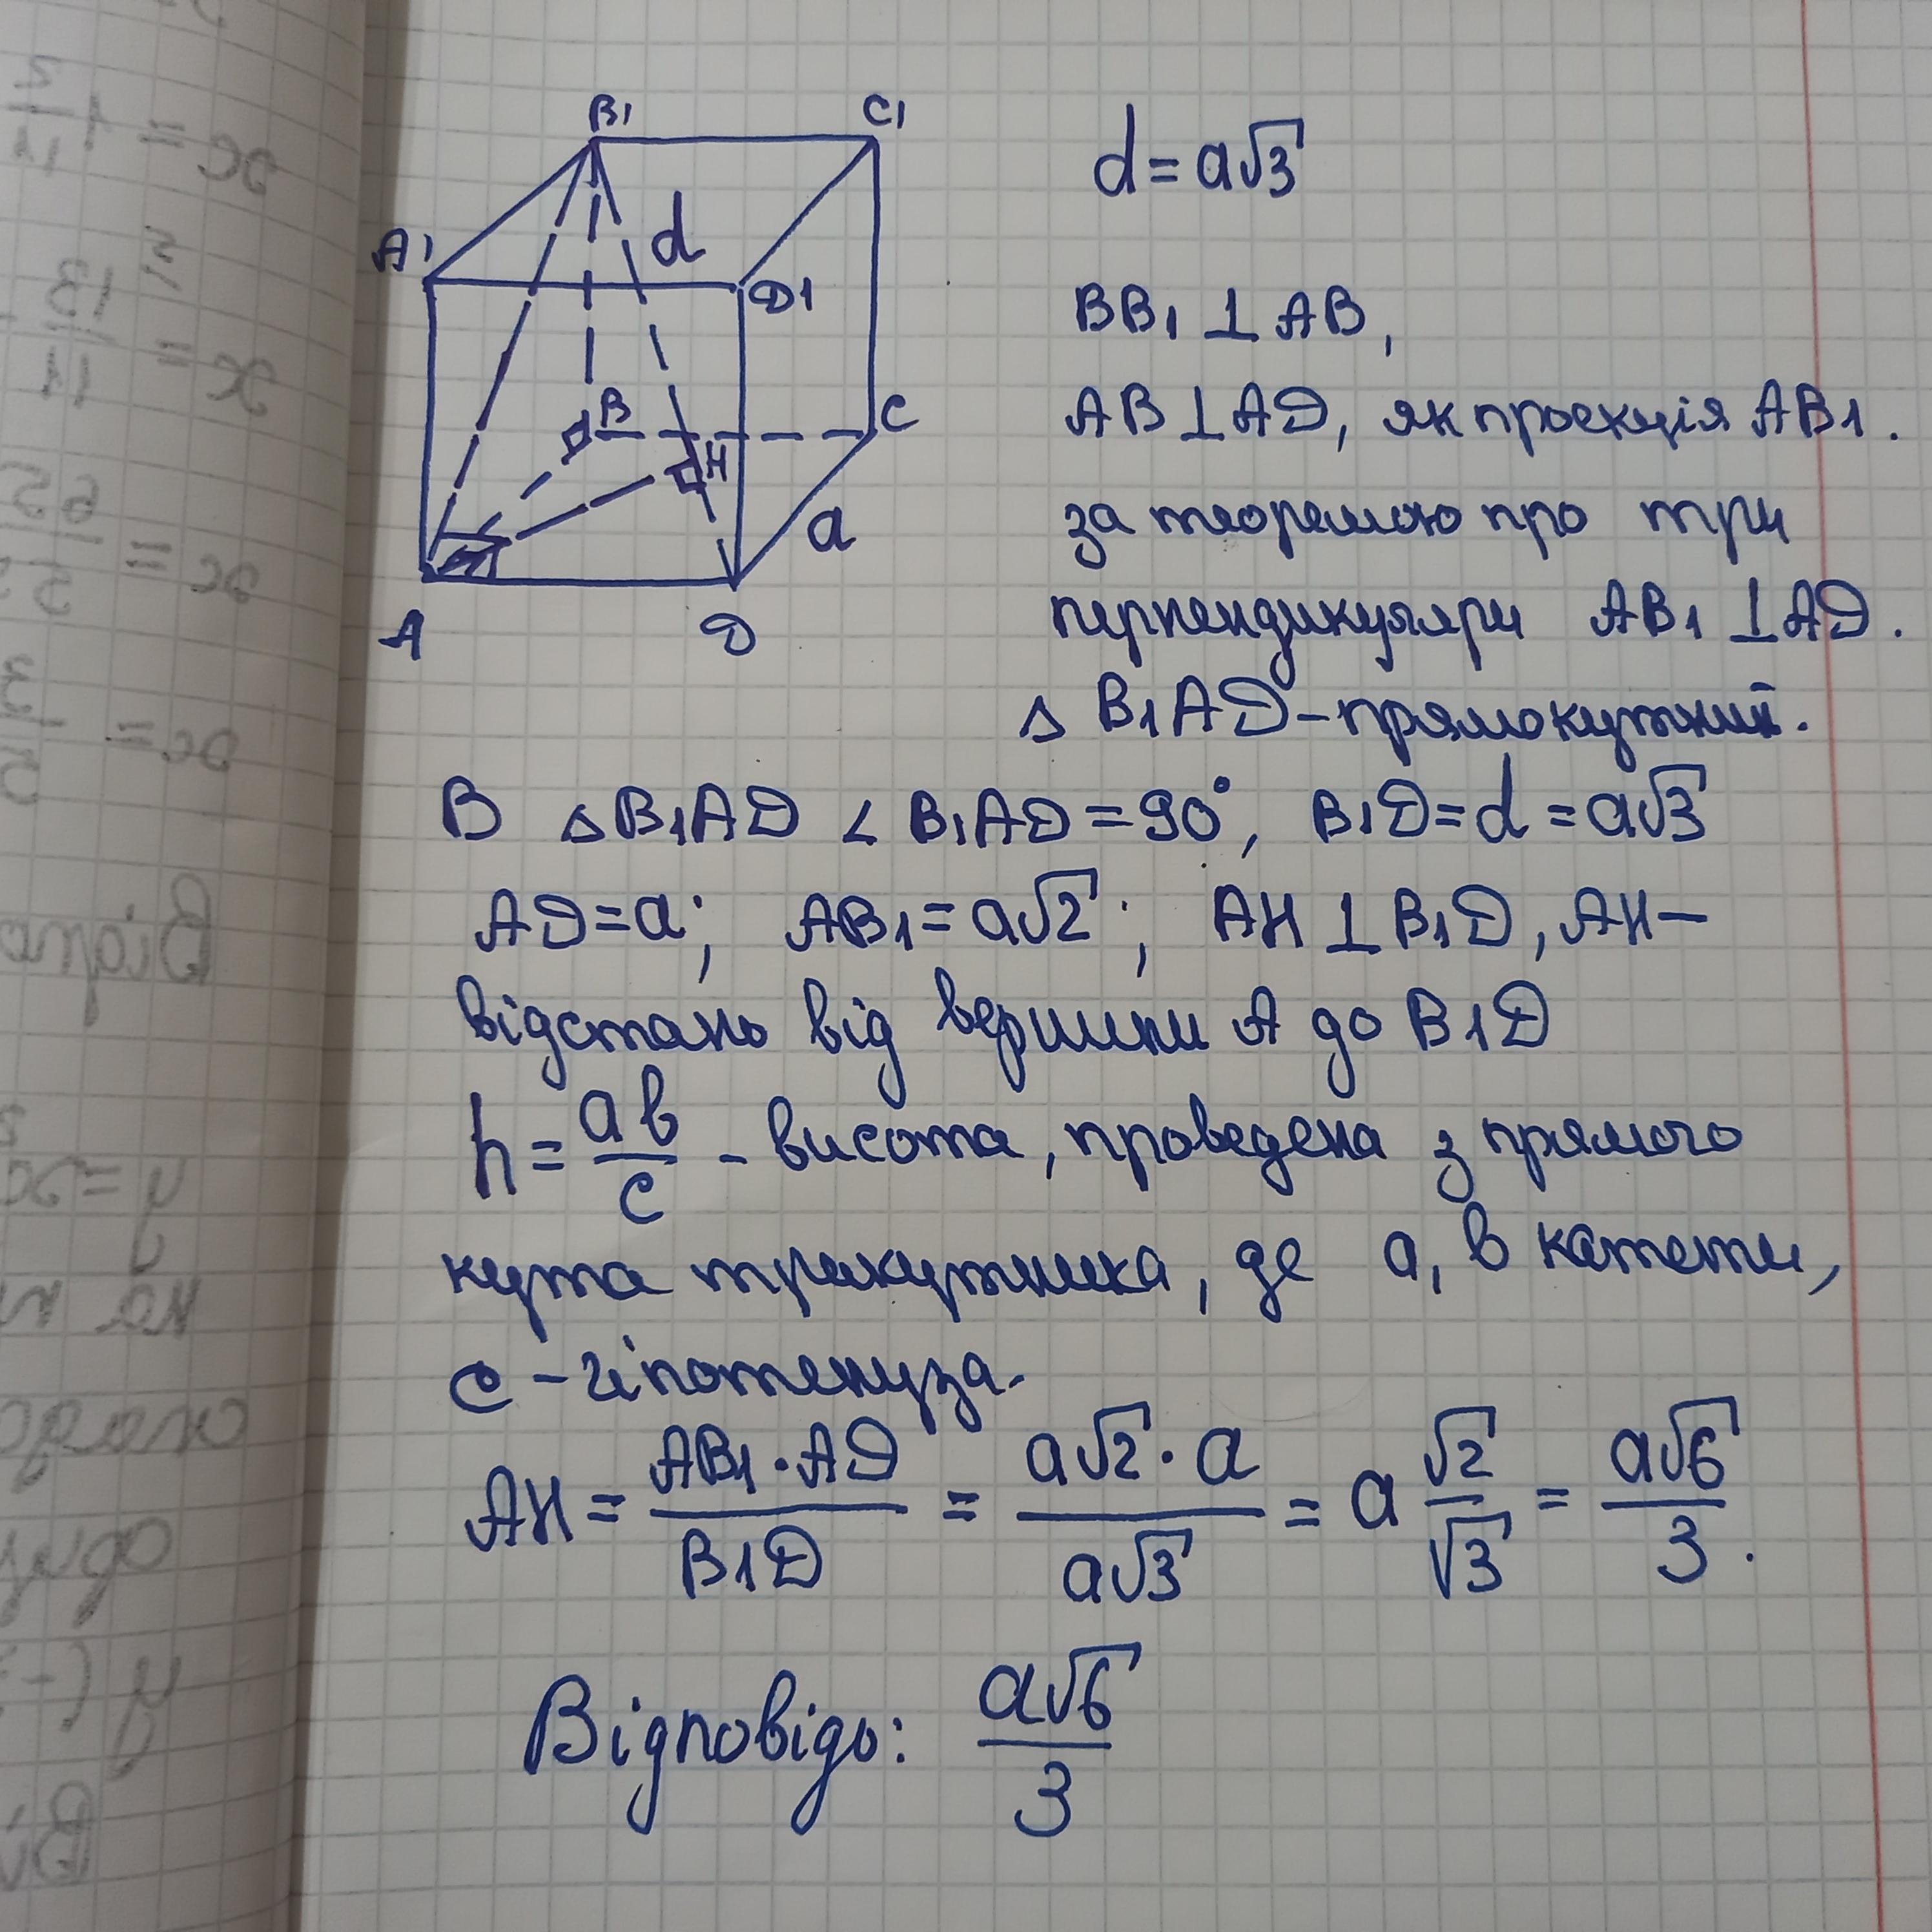 B1
C1
A1
d
D1
B
C
H
a
A
D
d = a√3
BB1 ⊥ AB,
AB ⊥ AD, як проекція AB1.
за теоремою про три
перпендикуляри AB1 ⊥ AD.
△ B1AD – прямокутний.
В △B1AD ∠ B1AD = 90°, B1D = d = a√3
AD = a; AB1 = a√2; AH ⊥ B1D, AH –
відстань від вершини A до B1D
h = ab/c – висота, проведена з прямого
кута трикутника, де a, b катети,
c – гіпотенуза.
AH = AB1·AD/B1D = a√2·a/a√3 = a √2/√3 = a√6/3.
Відповідь: a√6/3